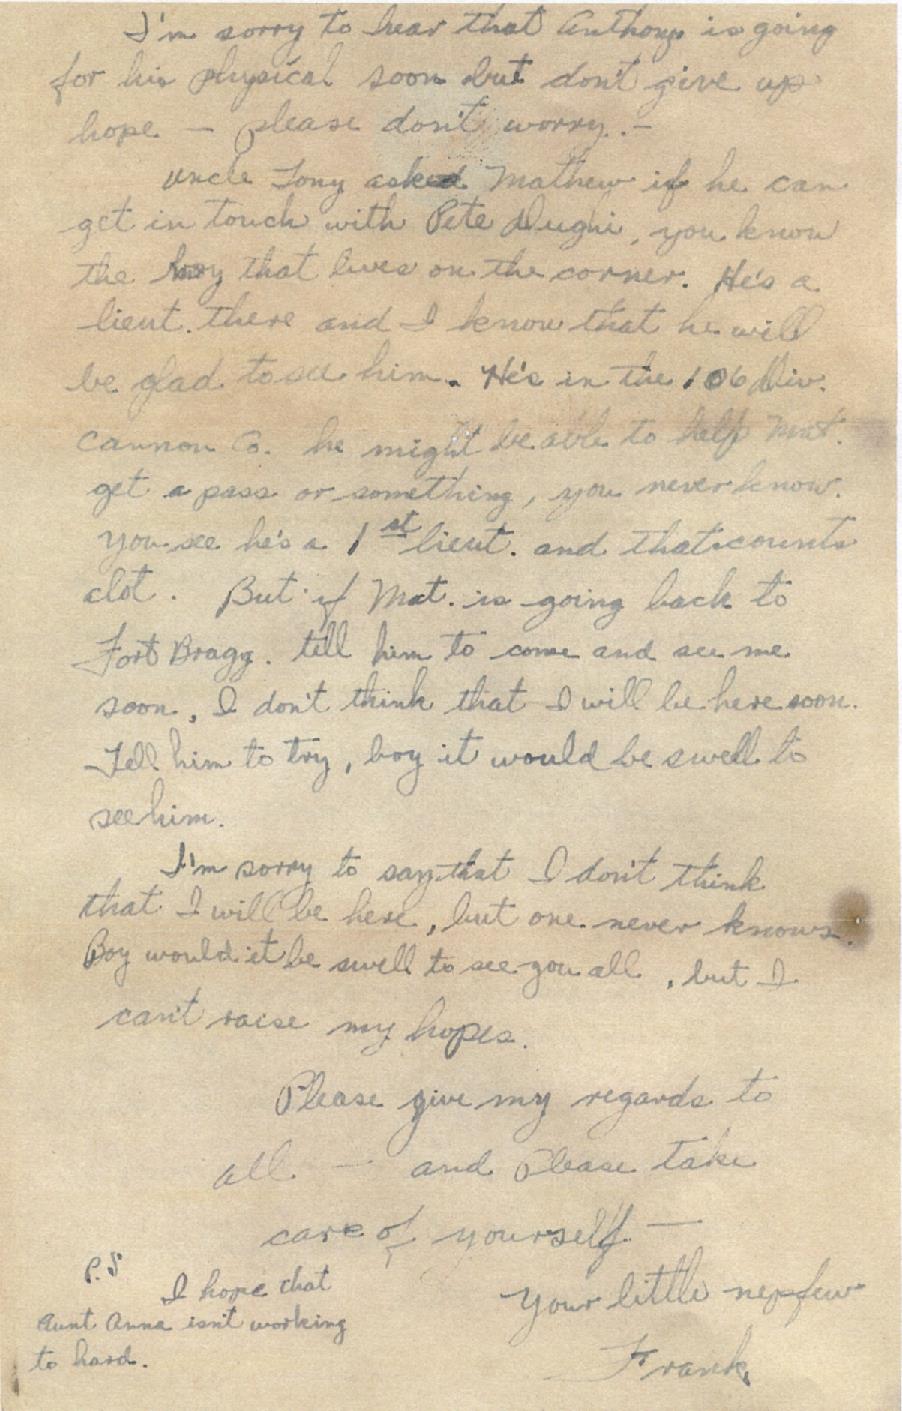 I'm sorry to hear that Anthony is going
for his physical soon but don't give up
hope — please don't worry. —
Uncle Tony asked Mathew if he can
get in touch with Pete Dughi, you know
the boy that lives on the corner. He's a
lieut. there and I know that he will
be glad to see him. He's in the 106 Div.
Cannon Co. he might be able to help Mat.
get a pass or something, you never know.
You see he's a 1st lieut. and that counts
alot. But if Mat. is going back to
Fort Bragg. tell him to come and see me
soon, I don't think that I will be here soon.
Tell him to try, boy it would be swell to
see him.
I'm sorry to say that I don't think
that I will be here, but one never knows.
Boy would it be swell to see you all, but I
can't raise my hopes.
Please give my regards to
all — and Please take
care of yourself —
Your little nepfew
Frank
P.S
I hope that
Aunt Anna isn't working
to hard.